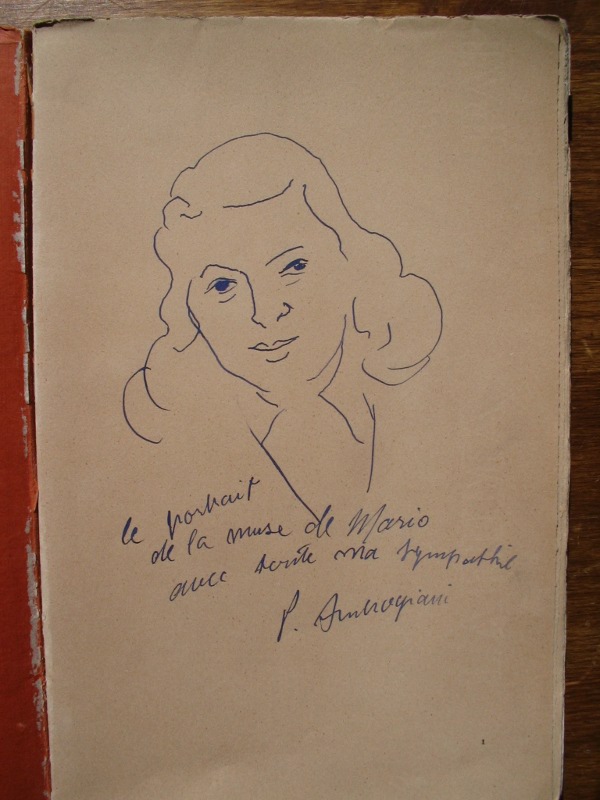 le portrait
de la muse de Mario
avec toute ma sympathie
P. Ambrogiani